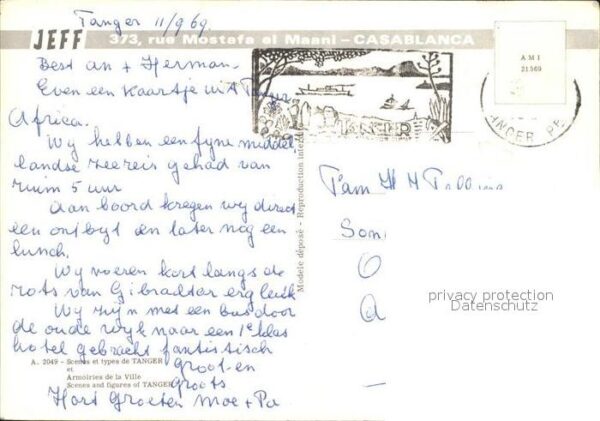 Tanger 11/9 69
JEFF
373, rue Mostafa el Maani – CASABLANCA
Best an + Herman.
Even een kaartje uit Tanger
Africa.
Wy hebben een fyne middel
landse zeereis gehad van
ruim 5 uur
Aan boord kregen wy direct
een ontbyt en later nog een
lunch.
Wy voeren kort langs de
rots van Gibralter erg leuk
Wy zyn met een bus door
de oude wyk naar een 1e klas
hotel gebracht fantistisch
groot en
groots
Hart Groeten Moe + Pa
A. 2049 – Scènes et types de TANGER
et
Armoiries de la Ville
Scenes and figures of TANGER
Modèle déposé - Reproduction
TANGER
AMI
21569
TANGER
Fam H M
Som
O
a
privacy protection
Datenschutz